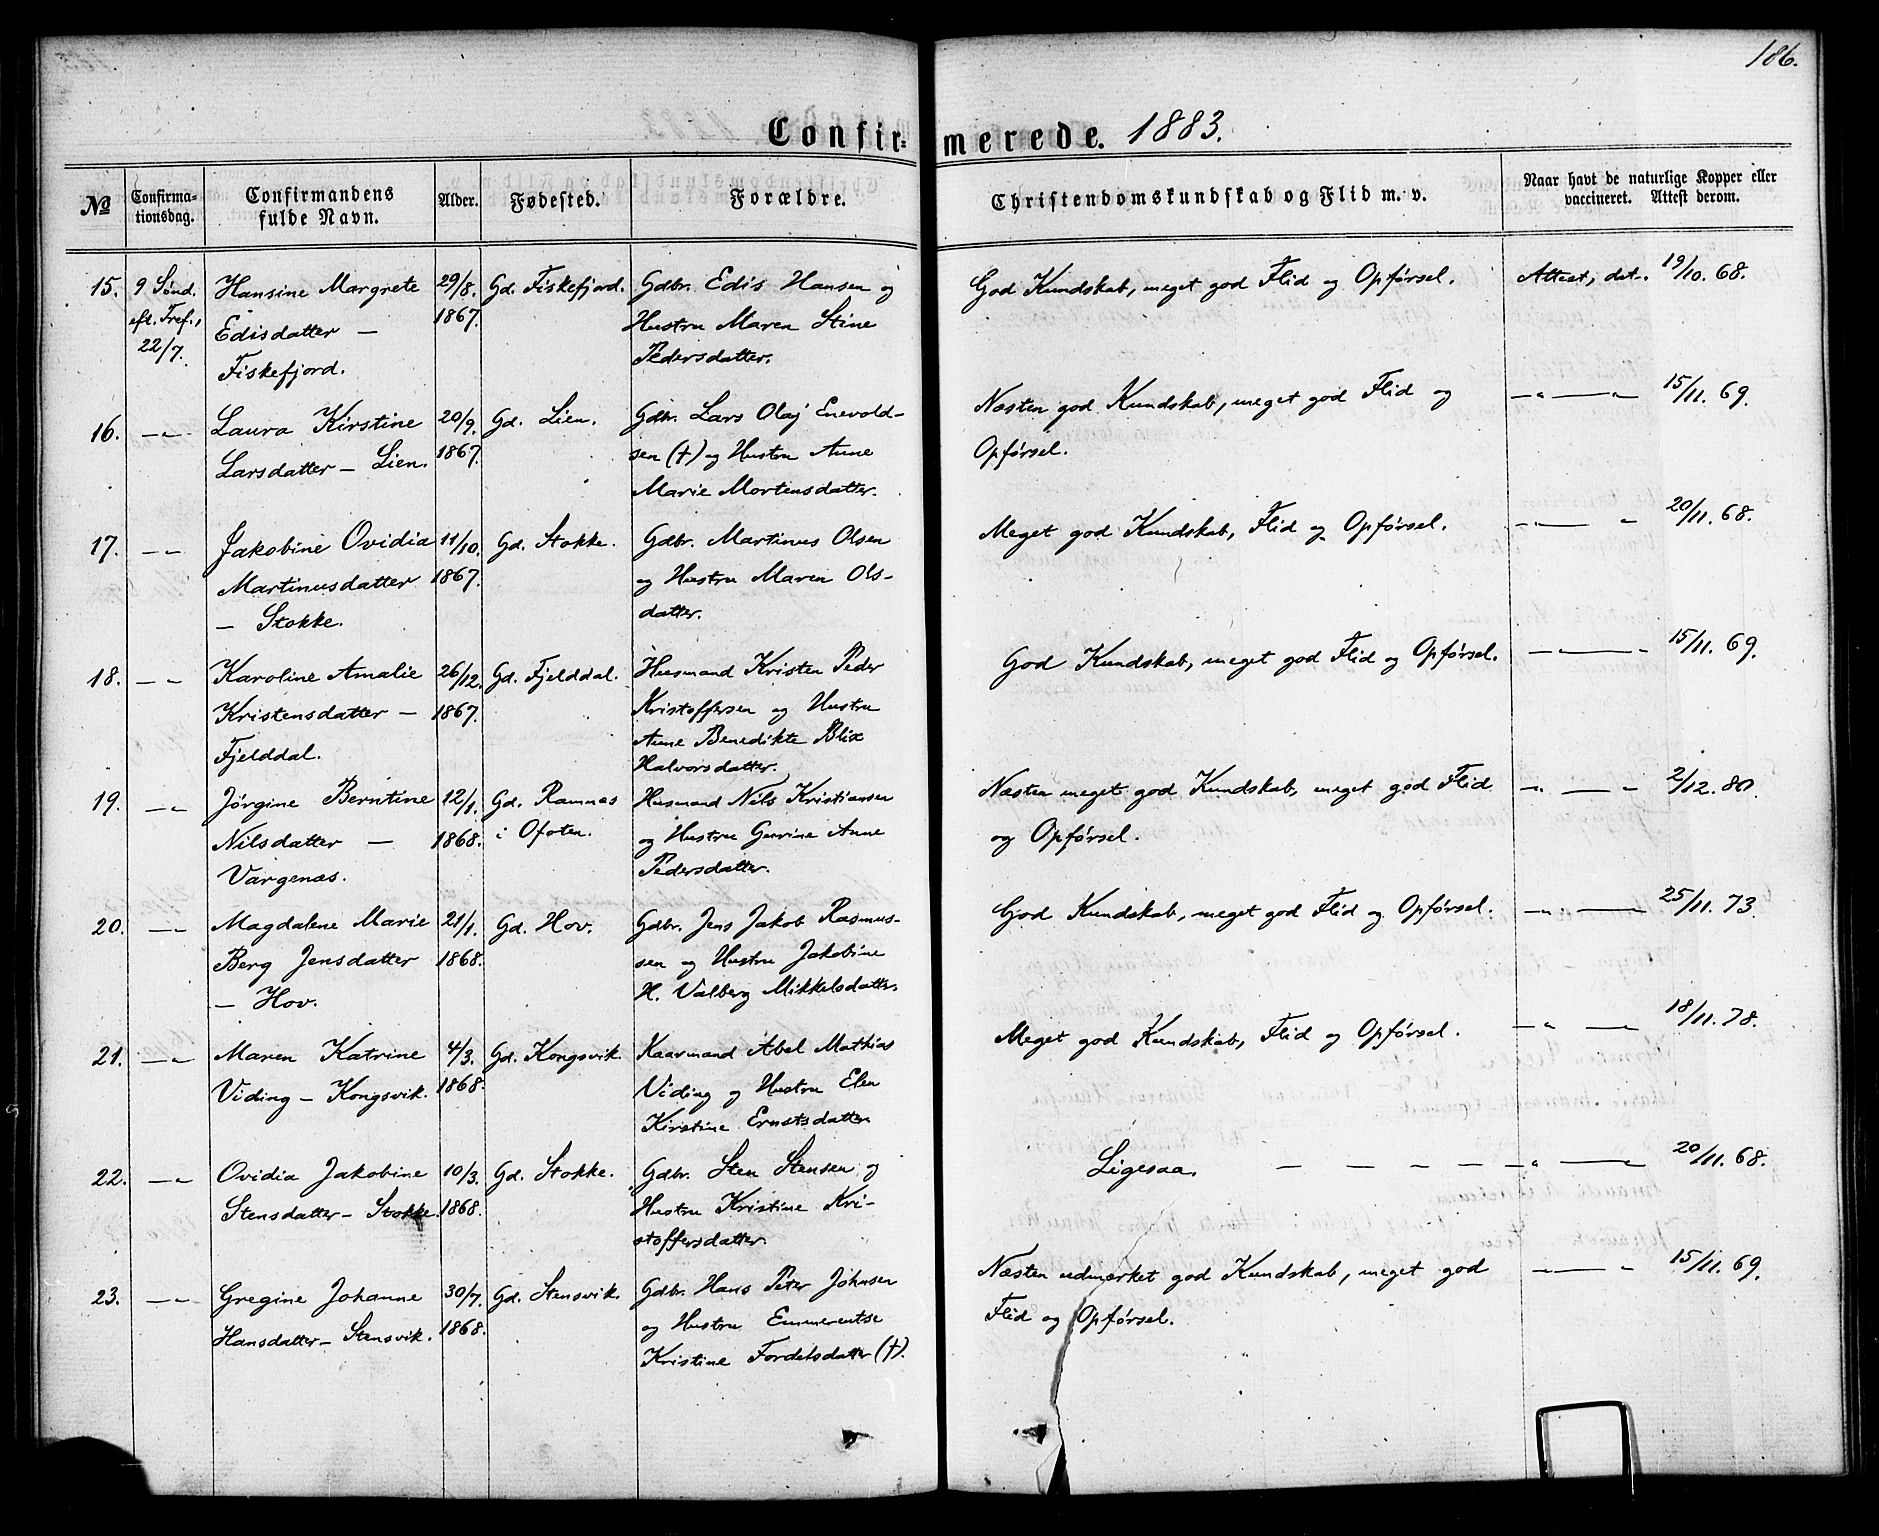 186.
Confir- merede. 1883.
№ Confirma-tionsdag. Confirmandens fulde Navn. Alder. Fødested. Forældre. Christendomskundskab og Flid m. v. Naar havt de naturlige Kopper eller vaccineret. Attest derom.
15. 9 Sönd. Hansine Margrete 29/8. Gd. Fiskefjord. Gdbr. Edis Hansen og God Kundskab, meget god Flid og Opførsel. Attest, dat. 19/10. 68.
eft. Tref., Edisdatter — 1867. Hustru Maren Stine
22/7. Fiskefjord. Pedersdatter.
16. —„— Laura Kirstine 20/9. Gd. Lien. Gdbr. Lars Olaj Enevold- Næsten god Kundskab, meget god Flid og —„—„— 15/11. 69.
Larsdatter — Lien. 1867. sen (†) og Hustru Anne Opførsel.
Marie Mortensdatter.
17. —„— Jakobine Ovidia 11/10. Gd. Stokke. Gdbr. Martinus Olsen Meget god Kundskab, Flid og Opførsel. —„— „ 20/11. 68.
Martinusdatter 1867. og Hustru Maren Ols-
— Stokke. datter.
18. —„ Karoline Amalie 26/12. Gd. Fjelddal. Husmand Kristen Peder God Kundskab, meget god Flid og Opførsel. —„—„— 15/11. 69.
Kristensdatter — 1867. Kristoffersen og Hustru
Fjelddal. Anne Benedikte Blix
Halvorsdatter.
19. —„ Jörgine Berntine 12/1. Gd. Ramnæs Husmand Nils Kristiansen Næsten meget god Kundskab, meget god Flid —„ — „ 2/12. 80.
Nilsdatter — 1868. i Ofoten. og Hustru Anne og Opførsel.
Vargenæs. Pedersdatter.
20. —„ Magdalene Marie 21/1. Gd. Hov. Gdbr. Jens Jakob Rasmus- God Kundskab, meget god Flid og Opførsel. —„—„— 25/11. 73.
Berg Jensdatter 1868. sen og Hustru Jakobine
— Hov. H. Valberg Mikkelsdatter.
21. —„ Maren Katrine 4/3. Gd. Kongsvik. Kaarmand Abel Mathias Meget god Kundskab, Flid og Opførsel. —„ —„ 18/11. 78.
Viding — Kongsvik. 1868. Viding og Hustru Elen
Kirstine Ernstsdatter
22. —„ Ovidia Jakobine 10/3. Gd. Stokke. Gdbr. Sten Stensen og Ligesaa. — — — — —„ —„ 20/11. 68.
Stensdatter — Stokke. 1868. Hustru Kristine Kri-
stoffersdatter.
23. —„ Gregine Johanne 30/7. Gd. Stensvik. Gdbr. Hans Peter Johnsen Næsten udmærket god Kundskab, meget god —„— „ 15/11. 69.
Hansdatter — Stensvik. 1868. og Hustru Emmerentse Flid og Opførsel.
Kristine Fordelsdatter (†).